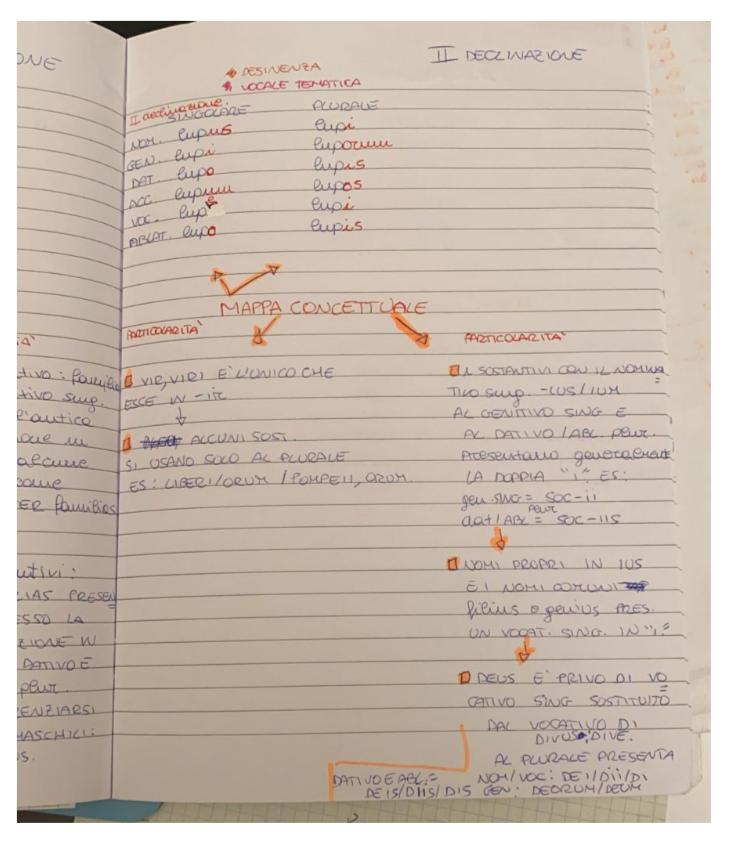 ONE
II DECLINAZIONE
DESINENZA
VOCALE TEMATICA
II declinazione:
SINGOLARE PLURALE
NOM. lupus lupi
GEN. lupi luporum
DAT. lupo lupis
ACC. lupum lupos
VOC. lupe lupi
ABLAT. lupo lupis
MAPPA CONCETTUALE
PARTICOLARITA'
VIR, VIRI E' L'UNICO CHE
ESCE IN -ir
ALCUNI SOST.
SI USANO SOLO AL PLURALE
ES: LIBERI/ORUM / POMPEII, ORUM.
PARTICOLARITA'
I SOSTANTIVI CON IL NOMINA
TIVO sing. -IUS/IUM
AL GENITIVO SING E
AL DATIVO/ABL. plur.
Presentano generalmente
LA DOPPIA "i" ES:
gen. SING = SOC-ii
plur
dat/ABL = SOC-IIS
NOMI PROPRI IN IUS
E I NOMI COMUNI
filius e genius PRES.
UN VOCAT. SING. IN "i"
DEUS E' PRIVO DI VO
CATIVO SING SOSTITUITO
DAL VOCATIVO DI
DIVUS, DIVE.
AL PLURALE PRESENTA
NOM/VOC: DEI/Dii/DI
GEN: DEORUM/DEUM
DATIVO E ABL:=
DEIS/DIIS/DIS
tivo: familia
tivo sing.
l'antico
alcune
come
ER familias
utivi:
IAS PRESEN
ESSO LA
ZIONE IN
DATIVO E
plur.
ENZIARSI
MASCHILI:
US.